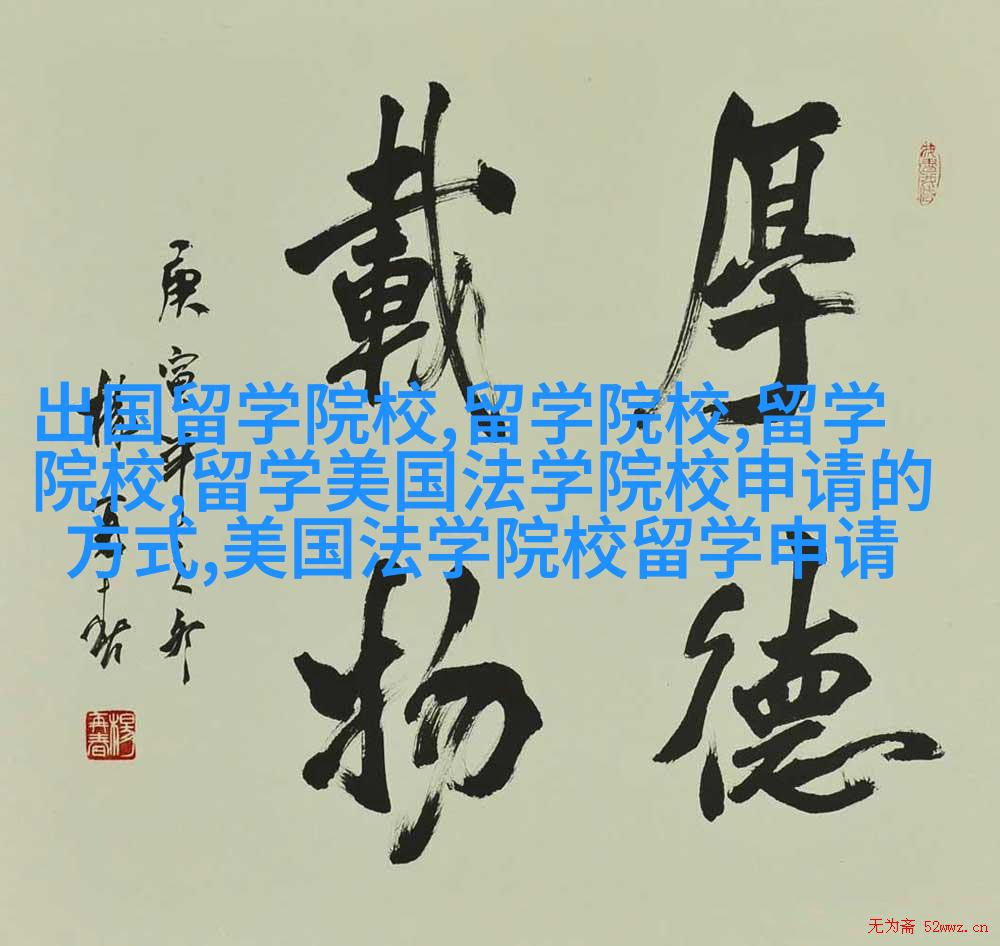 厚德
載物
庚寅年之卯
楊再春
出国留学院校,留学院校,留学
院校,留学美国法学院校申请的
方式,美国法学院校留学申请
无为斋 52wwz.cn